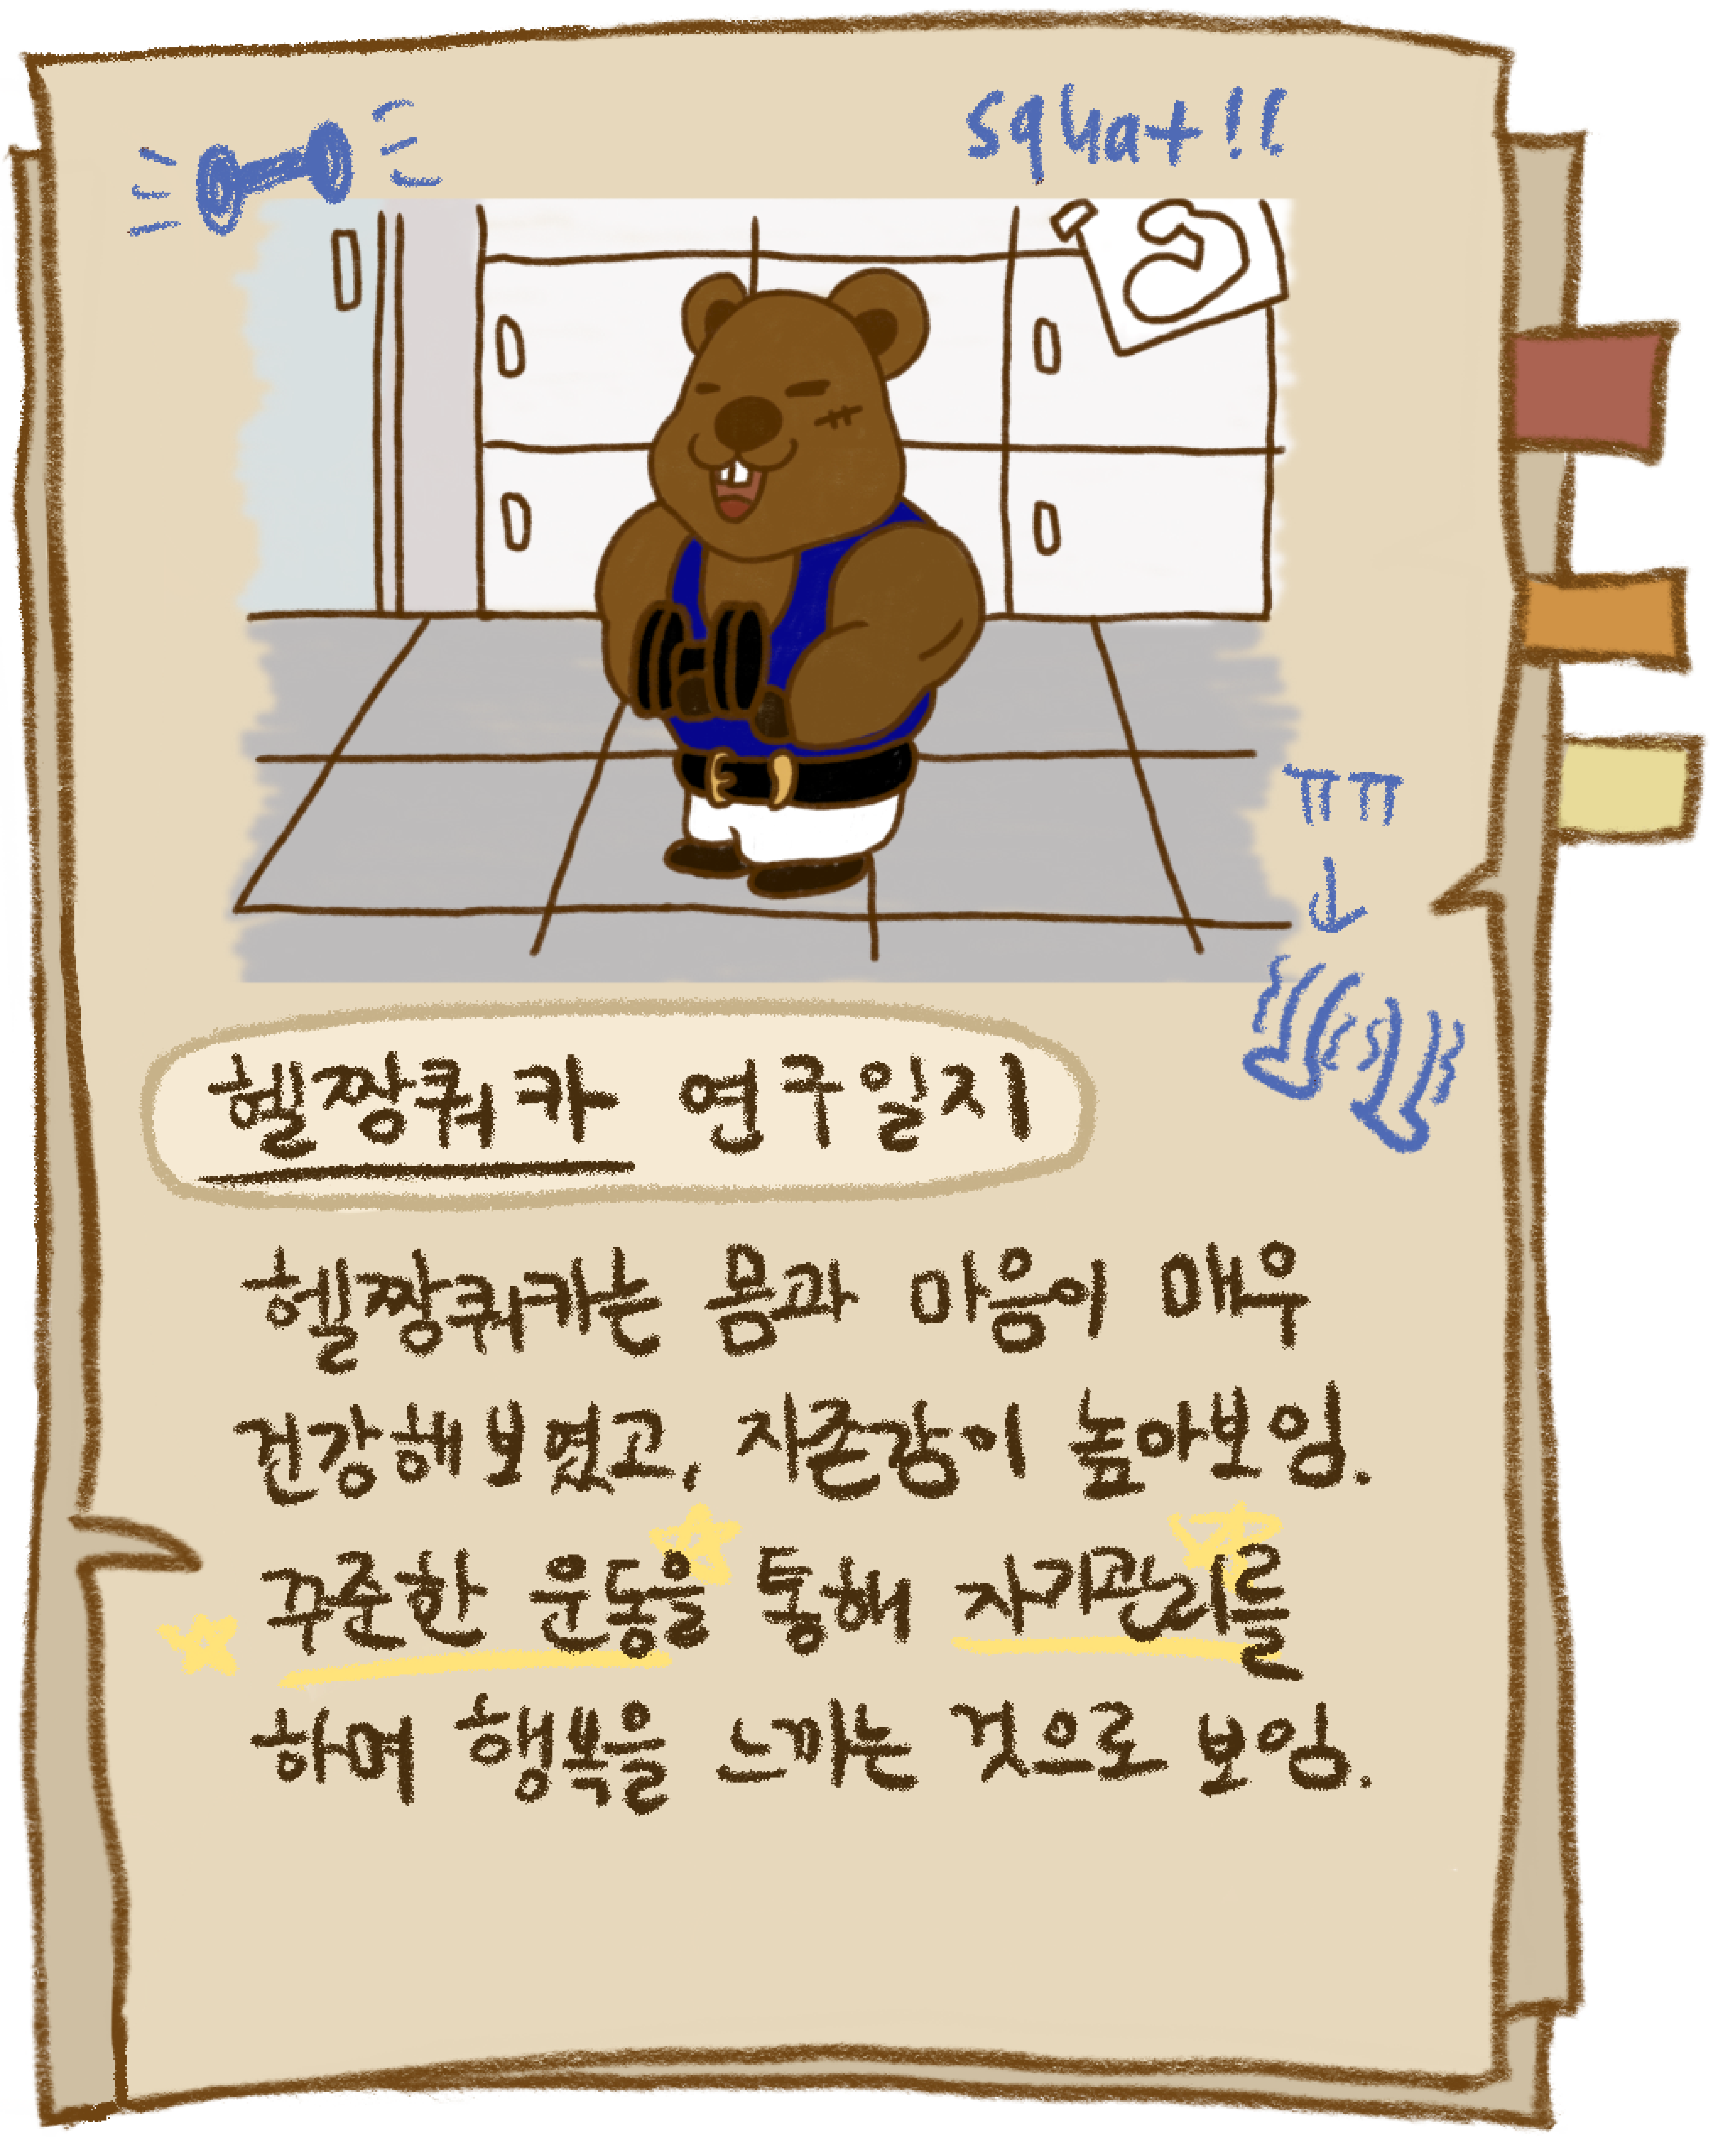 squat!!
ㅠㅠ
헬짱쿼카 연구일지
헬짱쿼카는 몸과 마음이 매우
건강해보였고, 자존감이 높아보임.
꾸준한 운동을 통해 자기관리를
하며 행복을 느끼는 것으로 보임.